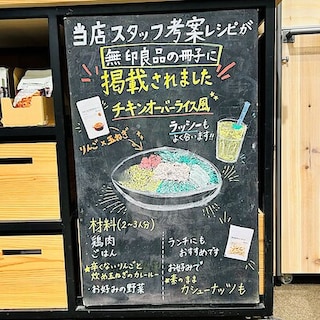 当店スタッフ考案レシピが
無印良品の冊子に
掲載されました
チキンオーバーライス風
ラッシーも
よく合います!!
りんご×玉ねぎ
材料(2~3人分)
鶏肉
ごはん
★辛くないりんごと
炒め玉ねぎのカレールー
お好みの野菜
ランチにも
おすすめです
お好みで
★素のまま
カシューナッツも